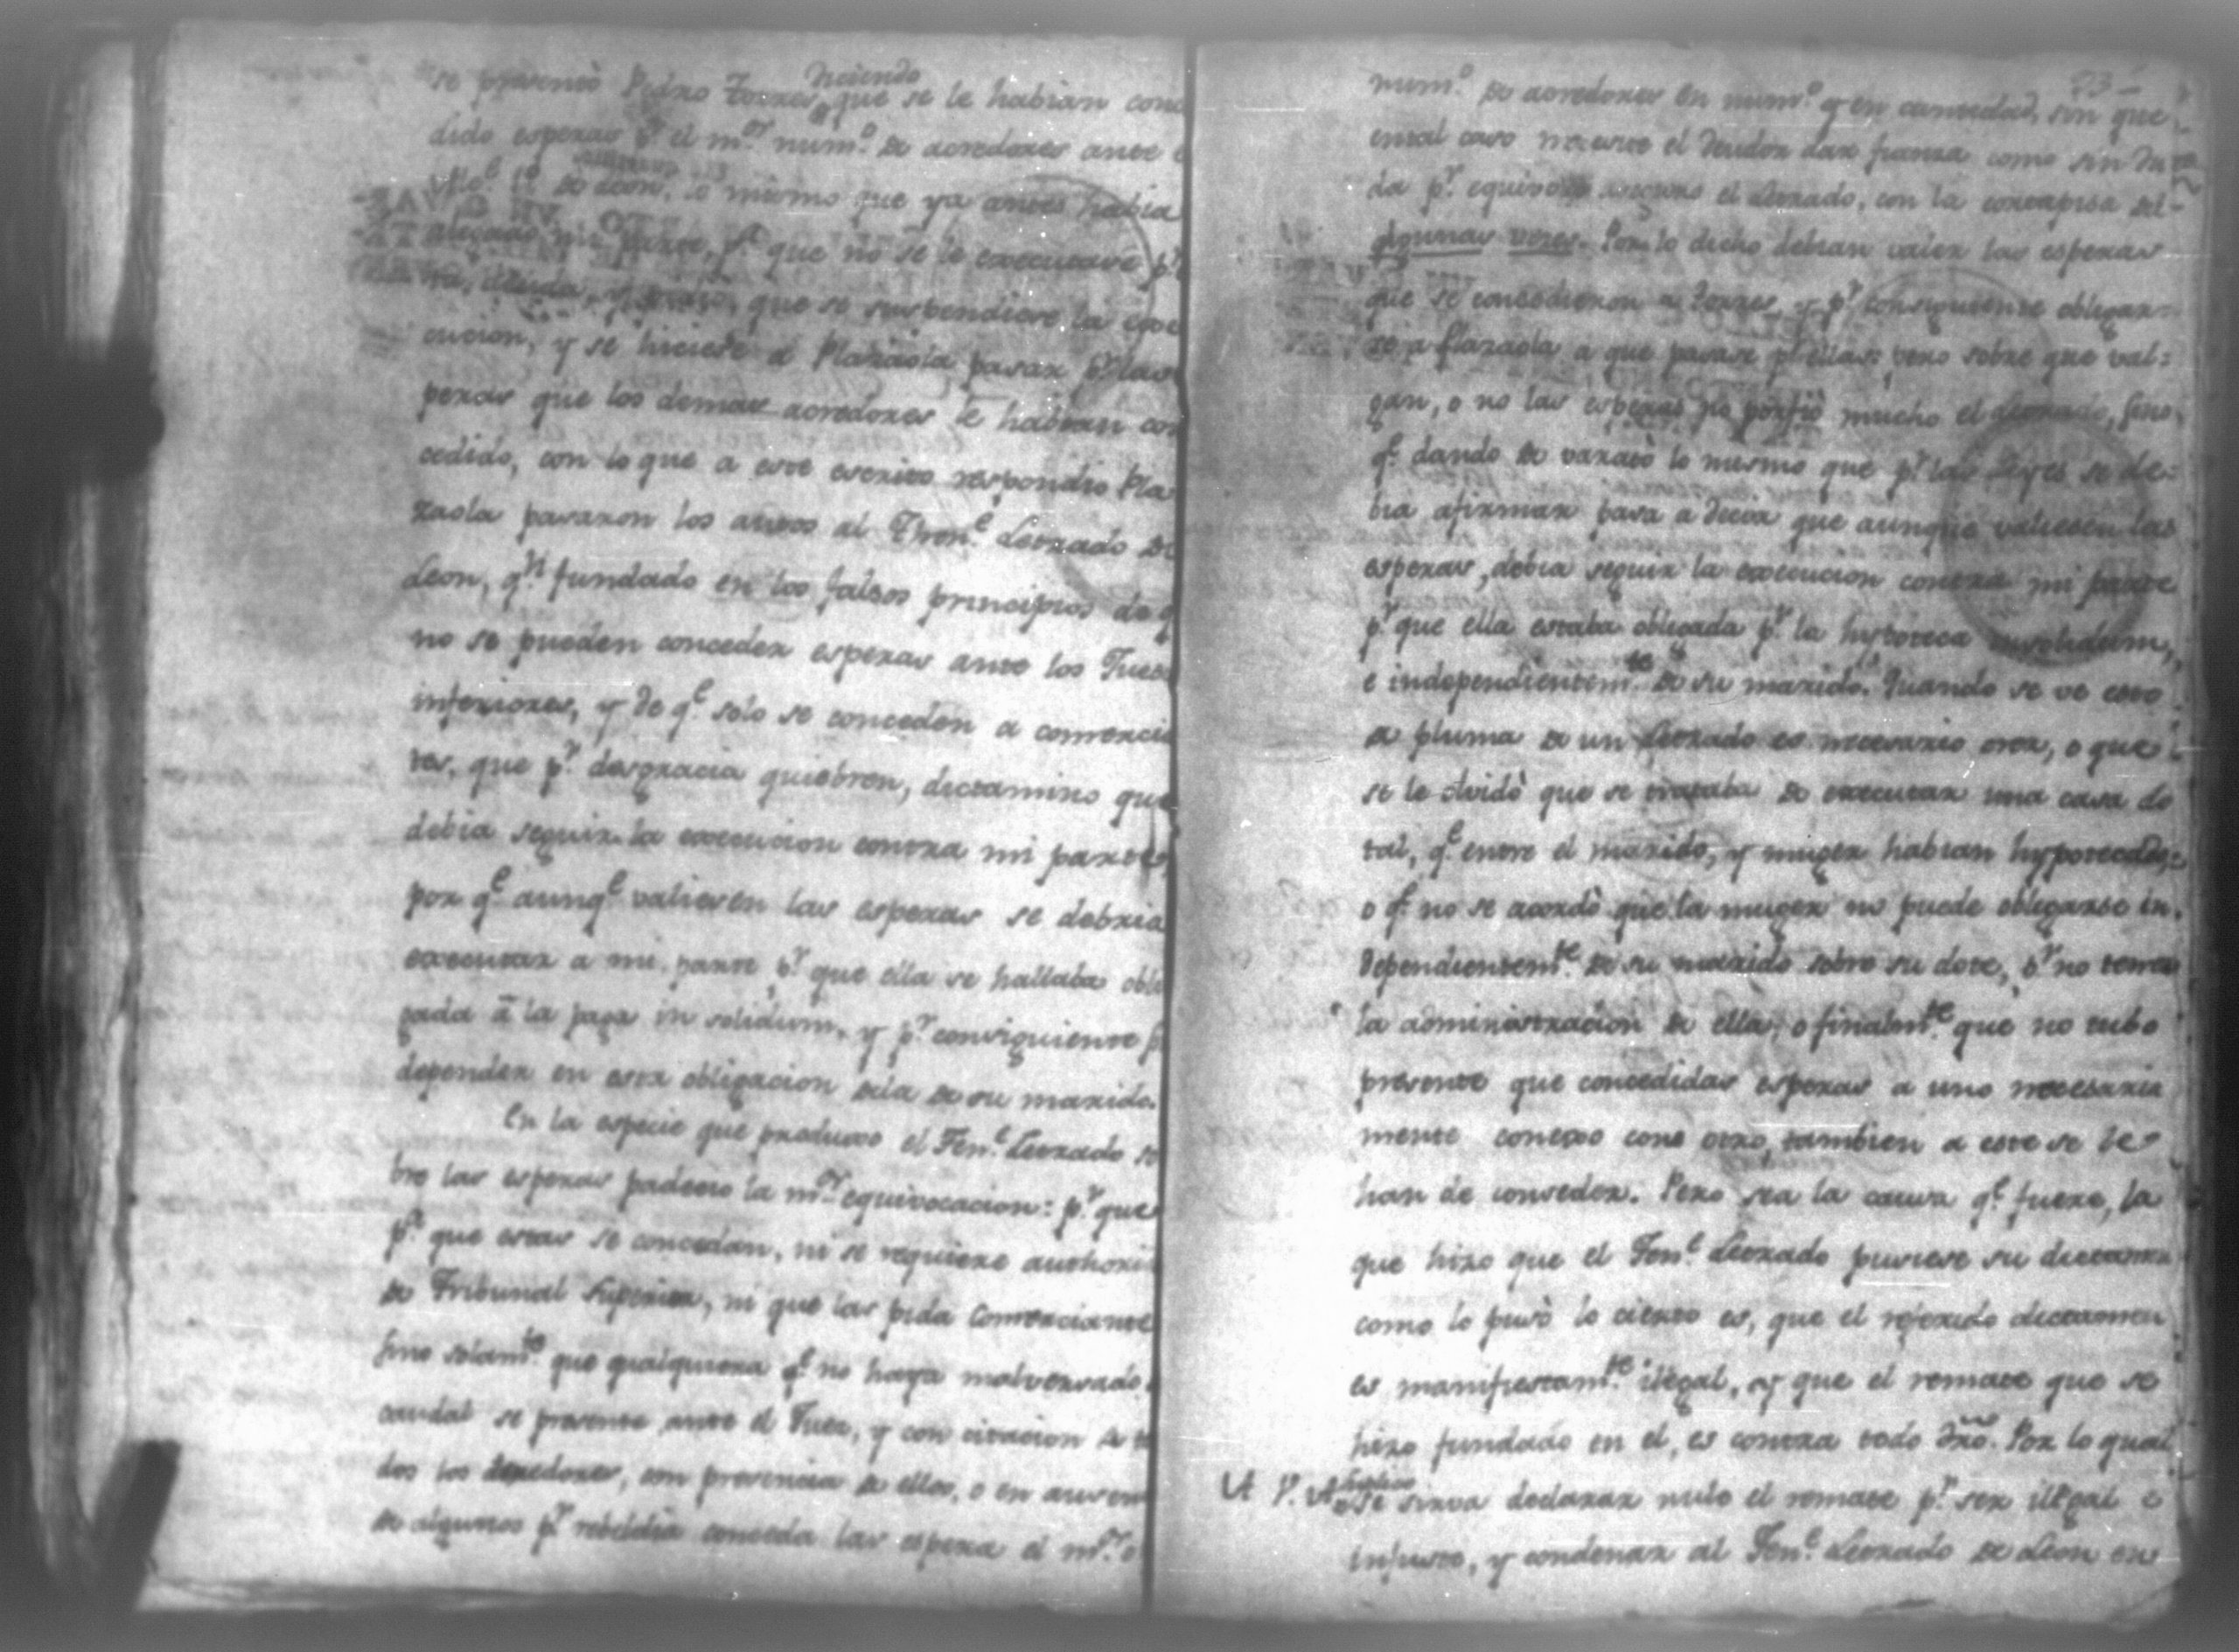 se presentò Pedro Torres diciendo que se le habian conce
dido esperas pr. el mor. numo. de acredores ante e
Alce. 1o. de lo mismo que ya antes habia
alegado mi parte, pa. que no se le executase pr.
deuda, y pidio, que se suspendiese la exe
cucion, y se hiciese a Plazaola pasar pr. las
peras que los demas acredores le habian con
cedido, con lo que a este escrito respondio Pla
zaola pasaron los autos al Thene. Letrado de
Leon, qn. fundado en los falsos principios de q
no se pueden conceder esperas ante los Juece
inferiores, y de qe. solo se conceden a comercia
tes, que pr. desgracia quiebren, dictamino que
debia seguir la execucion contra mi parte,
por qe. aunqe. valiesen las esperas se debria
executar a mi parte pr. que ella se hallaba obli
gada à la paga in solidum, y pr. consiguiente si
depender en esta obligacion dela de su marido.
En la especie que produxo el Tene. Letrado so
bre las esperas padecio la mor. equivocacion: pr. que
pa. que estas se concedan, ni se requiere authori
de Tribunal Superior, ni que las pida Comerciante
sino solamte. que qualquiera qe. no haya malversado
caudal se presente ante el Juez, y con citacion de to
dos los acredores, con presencia de ellos, o en ausen
de algunos pr. rebeldia conceda las espera el mor. o
23
numo. de acredores en numo. y en cantidad, sin que
ental caso necesite el deudor dar fianza como sin du
da pr. equivoco el Letrado, con la cortapisa de
algunas vezes. Por lo dicho debian valer las esperas
que se concedieron a Torres, y pr. consiguiente obligar
se a Plazaola a que pasase pr. ellas: pero sobre que val=
gan, o no las esperas no porfiò mucho el Letrado, sino
qe. dando de varatò lo mismo que pr. las Leyes se de=
bia afirmar pasa a decir que aunque valiesen las
esperas, debia seguir la execucion contra mi parte
pr. que ella estaba obligada pr. la hypoteca insolidum,
e independientemte. de su marido. Quando se ve esto
de pluma de un Letrado es necesario creer, o que
se le olvidò que se trataba de executar una casa do
tal, qe. entre el marido, y muger habian hypotecado,
o qe. no se acordò que la muger no puede obligarse in=
dependientemte. de su marido sobre su dote, pr. no tener
la administracion de ella, o finalmte. que no tubo
presente que concedidas esperas a uno necesaria
mente conexo con otro, tambien a este se le
han de conceder. Pero sea la causa qe. fuere, la
que hizo que el Tene. Letrado pusiese su dictamen
como lo pusò lo cierto es, que el referido dictamen
es manifiestamte. ilegal, y que el remate que se
hizo fundado en el, es contra todo dro. Por lo qual
A V. A. suplico se sirva declarar nulo el remate pr. ser illegal e
injusto, y condenar al Tene. Letrado de Leon en